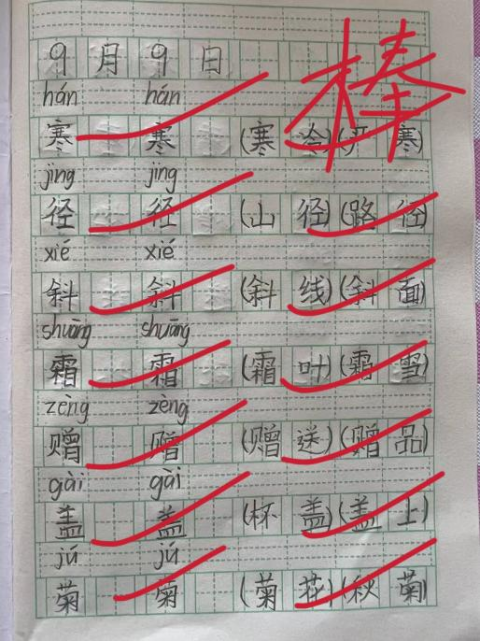 9月9日
棒
hán hán
寒 寒 (寒冷)(严寒)
jìng jìng
径 径 (山径)(路径)
xié xié
斜 斜 (斜线)(斜面)
shuāng shuāng
霜 霜 (霜叶)(霜雪)
zèng zèng
赠 赠 (赠送)(赠品)
gài gài
盖 盖 (杯盖)(盖上)
jú jú
菊 菊 (菊花)(秋菊)